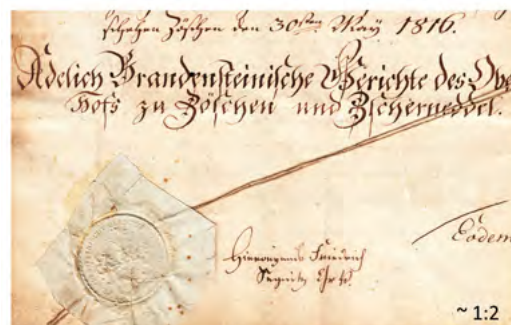 schehen Zöschen den 30sten May 1816.
Adelich Brandensteinische Gerichte des Obe
Hofs zu Zöschen und Zscherneddel.
Hieronymus Friedrich
Segnitz
Eodem
~ 1:2